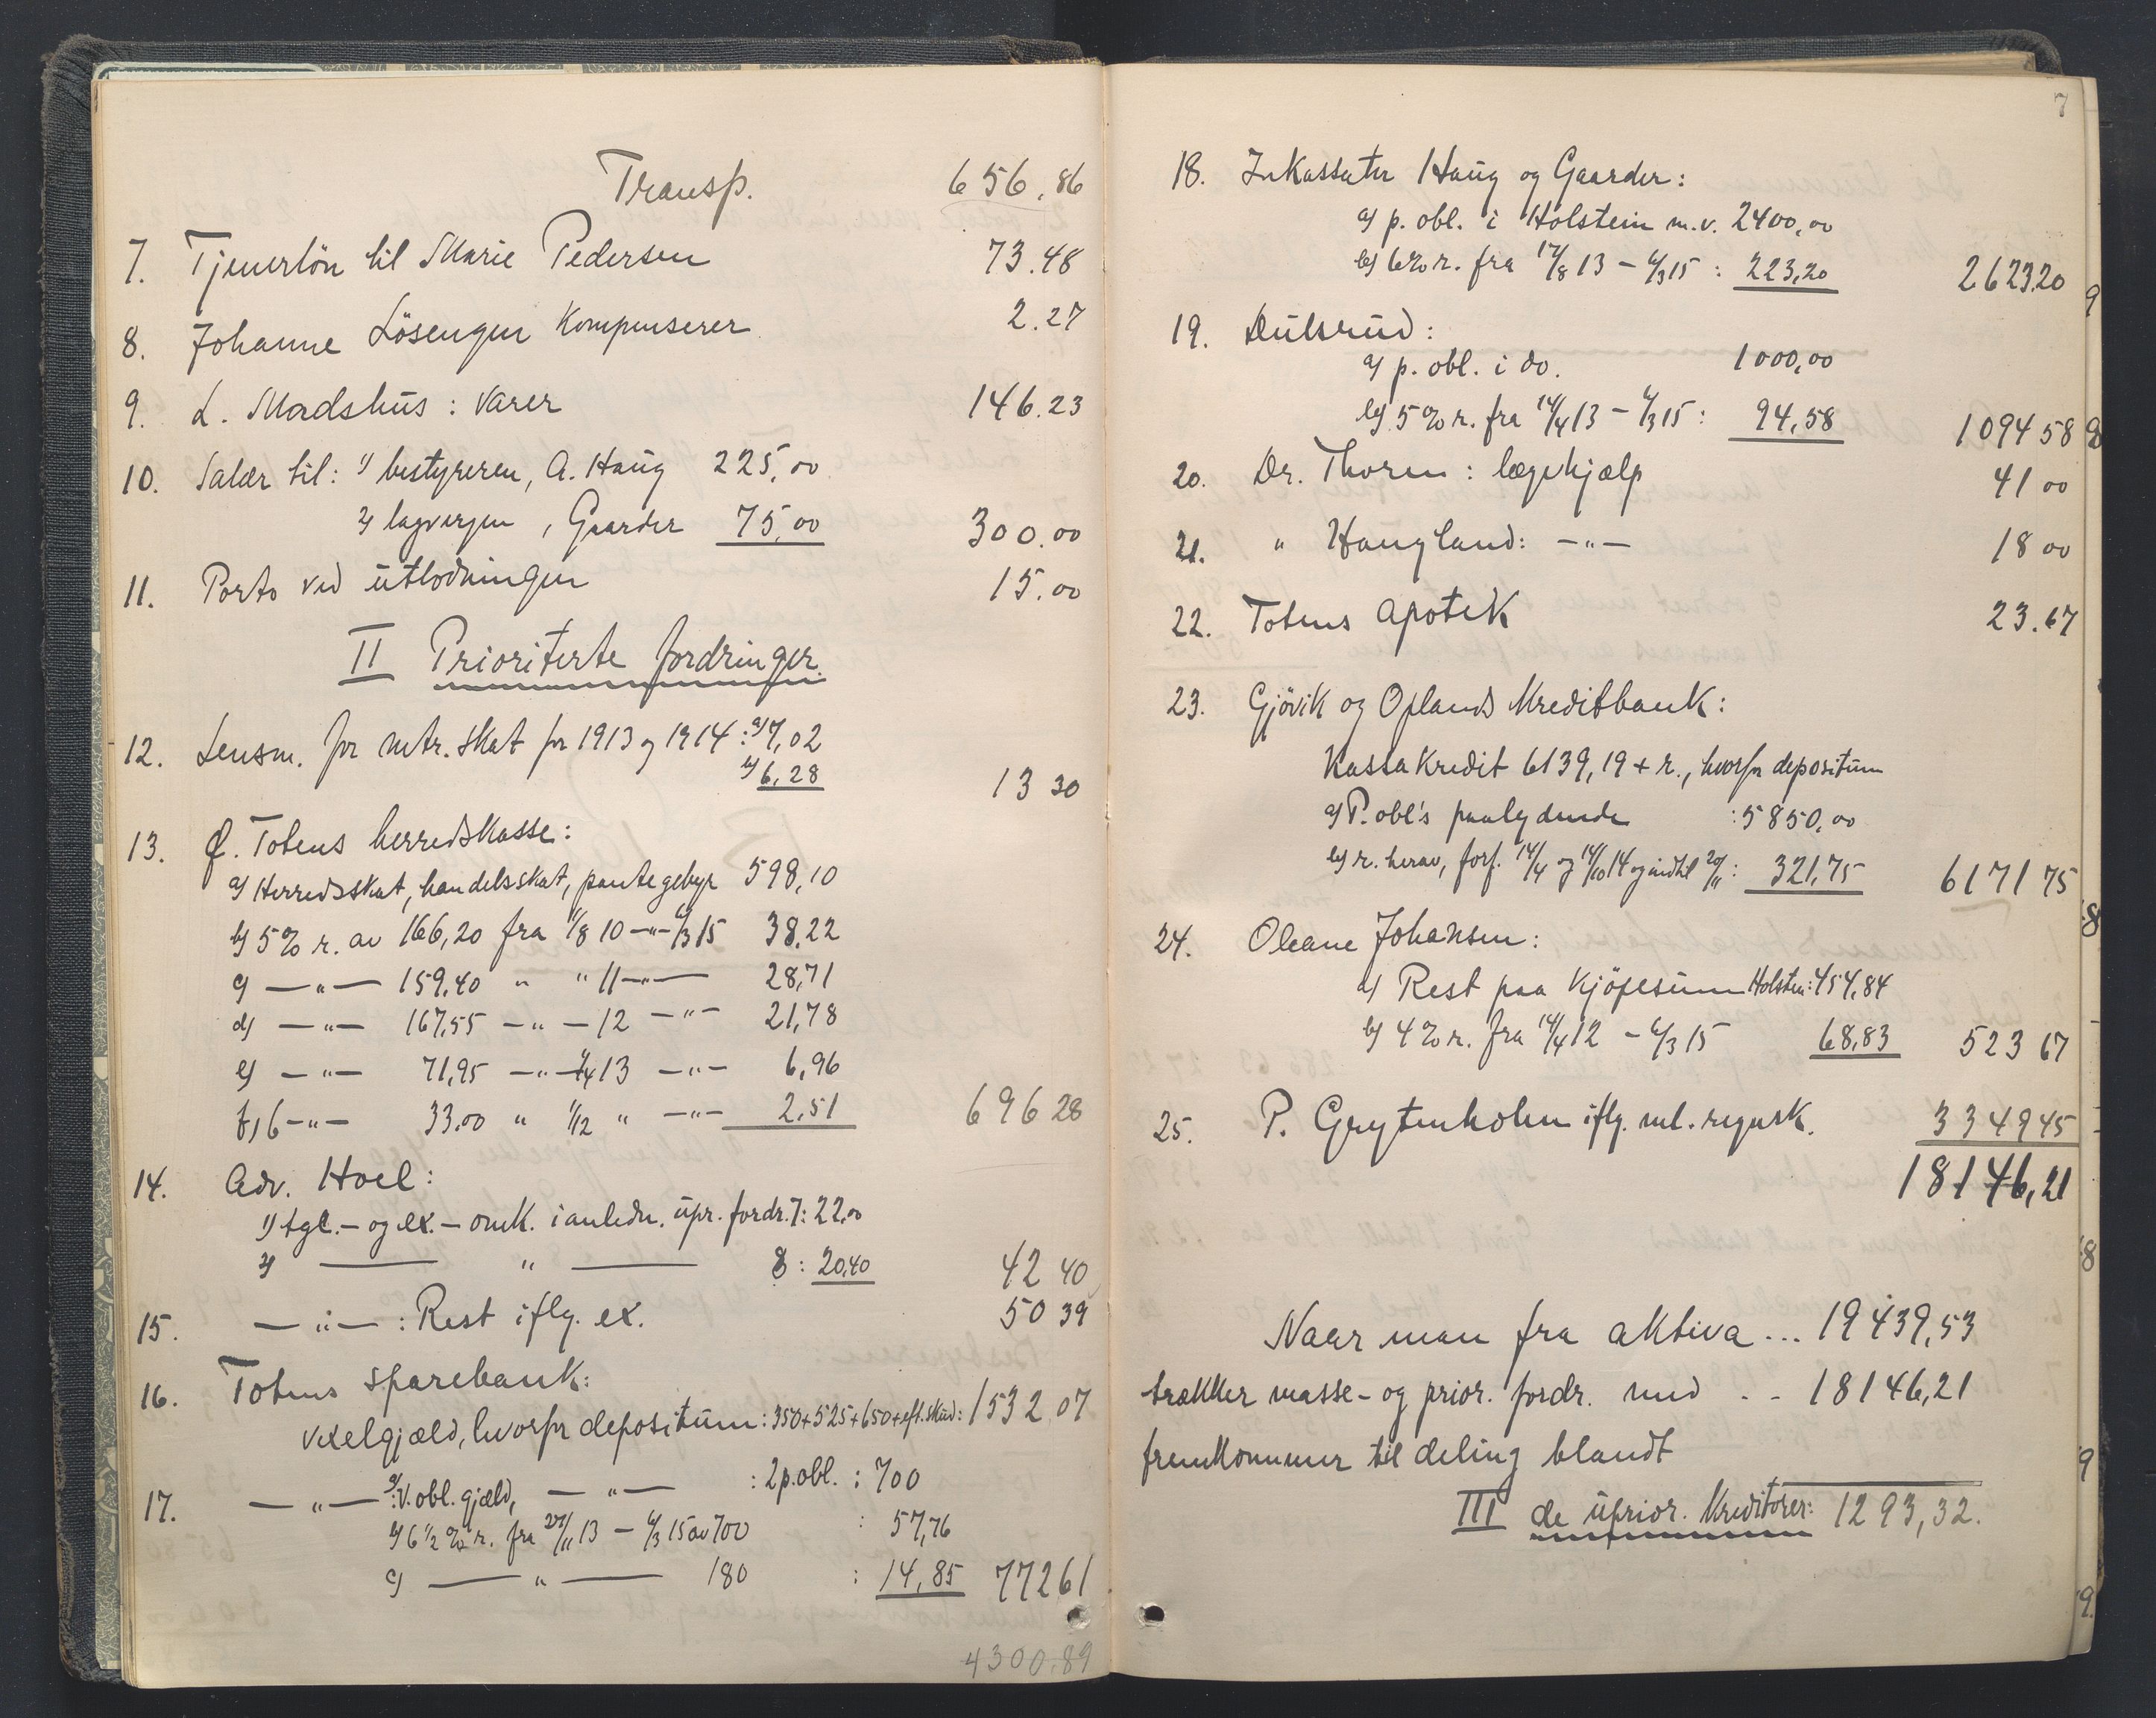 Transp. 656.86
7. Tjenerlön til Marie Pedersen 73.48
8. Johanne Lösengen Kompenserer 2.27
9. L. Madshus: varer 146.23
10. Salær til: 1) bestyreren, A. Haug 225,00
2) lagvergen, Gaarder 75,00 300.00
11. Porto ved utlodningen 15.00
II Prioriterte fordringer.
12. Lensm. for mtr. skat for 1913 og 1914: a) 7,02
b) 6,28 13 30
13. Ø. Totens herredskasse:
a) Herredsskat, handelsskat, pantegebyr 598,10
b) 5% r. av 166,20 fra 1/8 10 -"- 6/3 15 38,22
c) -"- 159,40 " " 11 -"- 28,71
d) -"- 167,55 -"- 12 -"- 21,78
e) -"- 71,95 -"- 1/4 13 -"- 6,96
f) 6 -"- 33,00 " 1/12 " -"- 2,51 696 28
14. Adv. Hoel:
1) tgl.- og ex.- omk. i anledn. upr. fordr. 7: 22,00
2) " 8: 20,40 42 40
15. -"- : Rest iflg. ex. 50 39
16. Totens sparebank:
Vexelgjæld, hvorfor depositum: 350+525+650+eft.skud: 1532 07
17. -"- a): V. obl. gjæld, -"- : 2 p. obl. : 700
b) 6 1/2 % r. fra 27/11 13 - 6/3 15 av 700 : 57,76
c) " 180 : 14,85 772 61
4300.89
7
18. Inkassator Haug og Gaarder:
a) p. obl. i Holstein m.v. 2400,00
b) 6% r. fra 17/8 13 - 6/3 15 : 223,20 2623.20
19. Dulsrud:
a) p. obl. i do. 1000,00
b) 5% r. fra 14/4 13 - 6/3 15: 94,58 1094 58
20. Dr. Thoren: lægehjælp 41 00
21. " Haugland: -"- 18 00
22. Totens apotek 23.67
23. Gjövik og Oplands Kreditbank:
Kassakredit 6139,19 + r., hvorfor depositum
a) P. obl's paalydende : 5850,00
b) r. herav, forf. 14/4 og 14/10 14 og indtil 20/11 : 321,75 6171 75
24. Oleane Johansen:
a) Rest paa kjöpesum Holstein: 454,84
b) 4% r. fra 14/4 12 - 6/3 15 68,83 523 67
25. P. Grytenholm iflg. regnsk. 3349 45
18146,21
Naar man fra aktiva ... 19439,53
trækker masse- og prior. fordr. med - - 18146,21
fremkommer til deling blandt
III de uprior. Kreditorer: 1293,32.